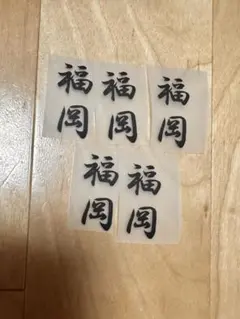 福岡
福岡
福岡
福岡
福岡